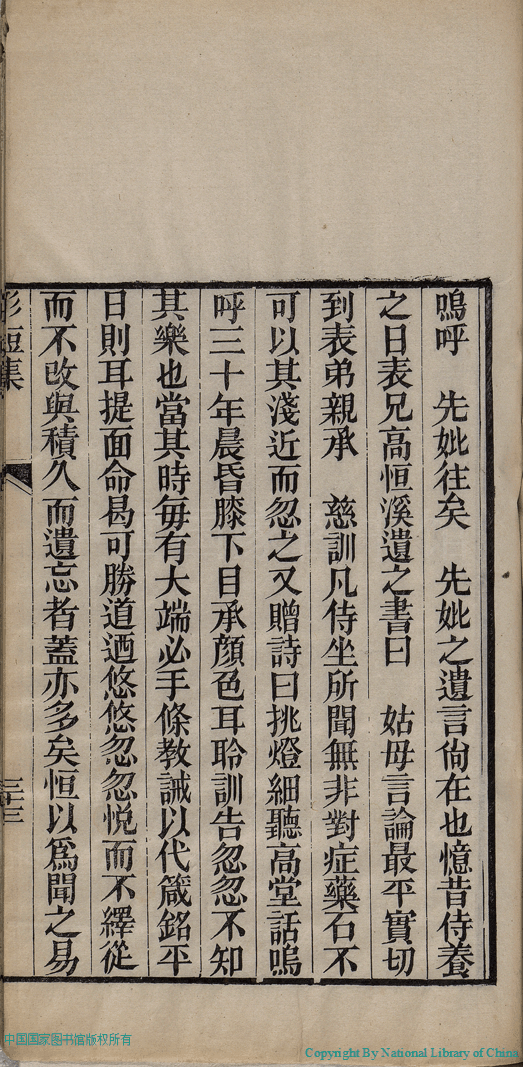 嗚呼　先妣往矣　先妣之遺言尙在也憶昔侍養
之日表兄高恒溪遺之書曰　姑毋言論最平實切
到表弟親承　慈訓凡侍坐所聞無非對症藥石不
可以其淺近而忽之又贈詩曰挑燈細聽高堂話嗚
呼三十年晨昏膝下目承顏色耳聆訓告忽忽不知
其樂也當其時毎有大端必手條教誡以代箴銘平
日則耳提面命曷可勝道迺悠悠忽忽悅而不繹從
而不改與積久而遺忘者蓋亦多矣恒以爲聞之易
短集
二十三
中国国家图书馆版权所有
Copyright By National Library of China